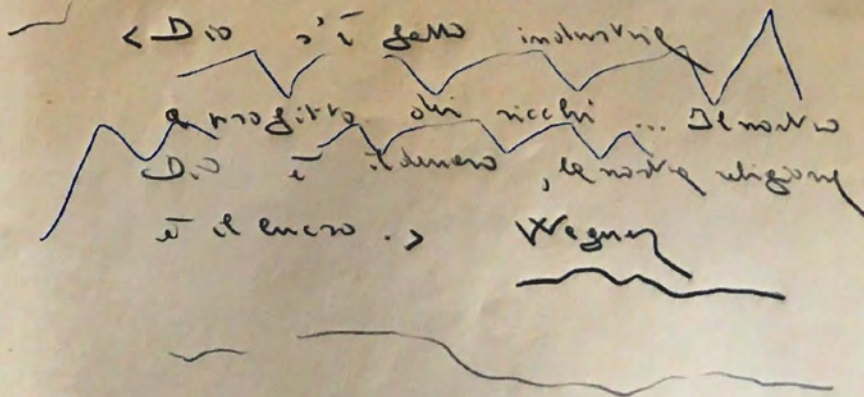 < Dio s'è fatto industria
a profitto dei ricchi ... Il nostro
Dio è il denaro, la nostra religione
è il lucro. > Wagner